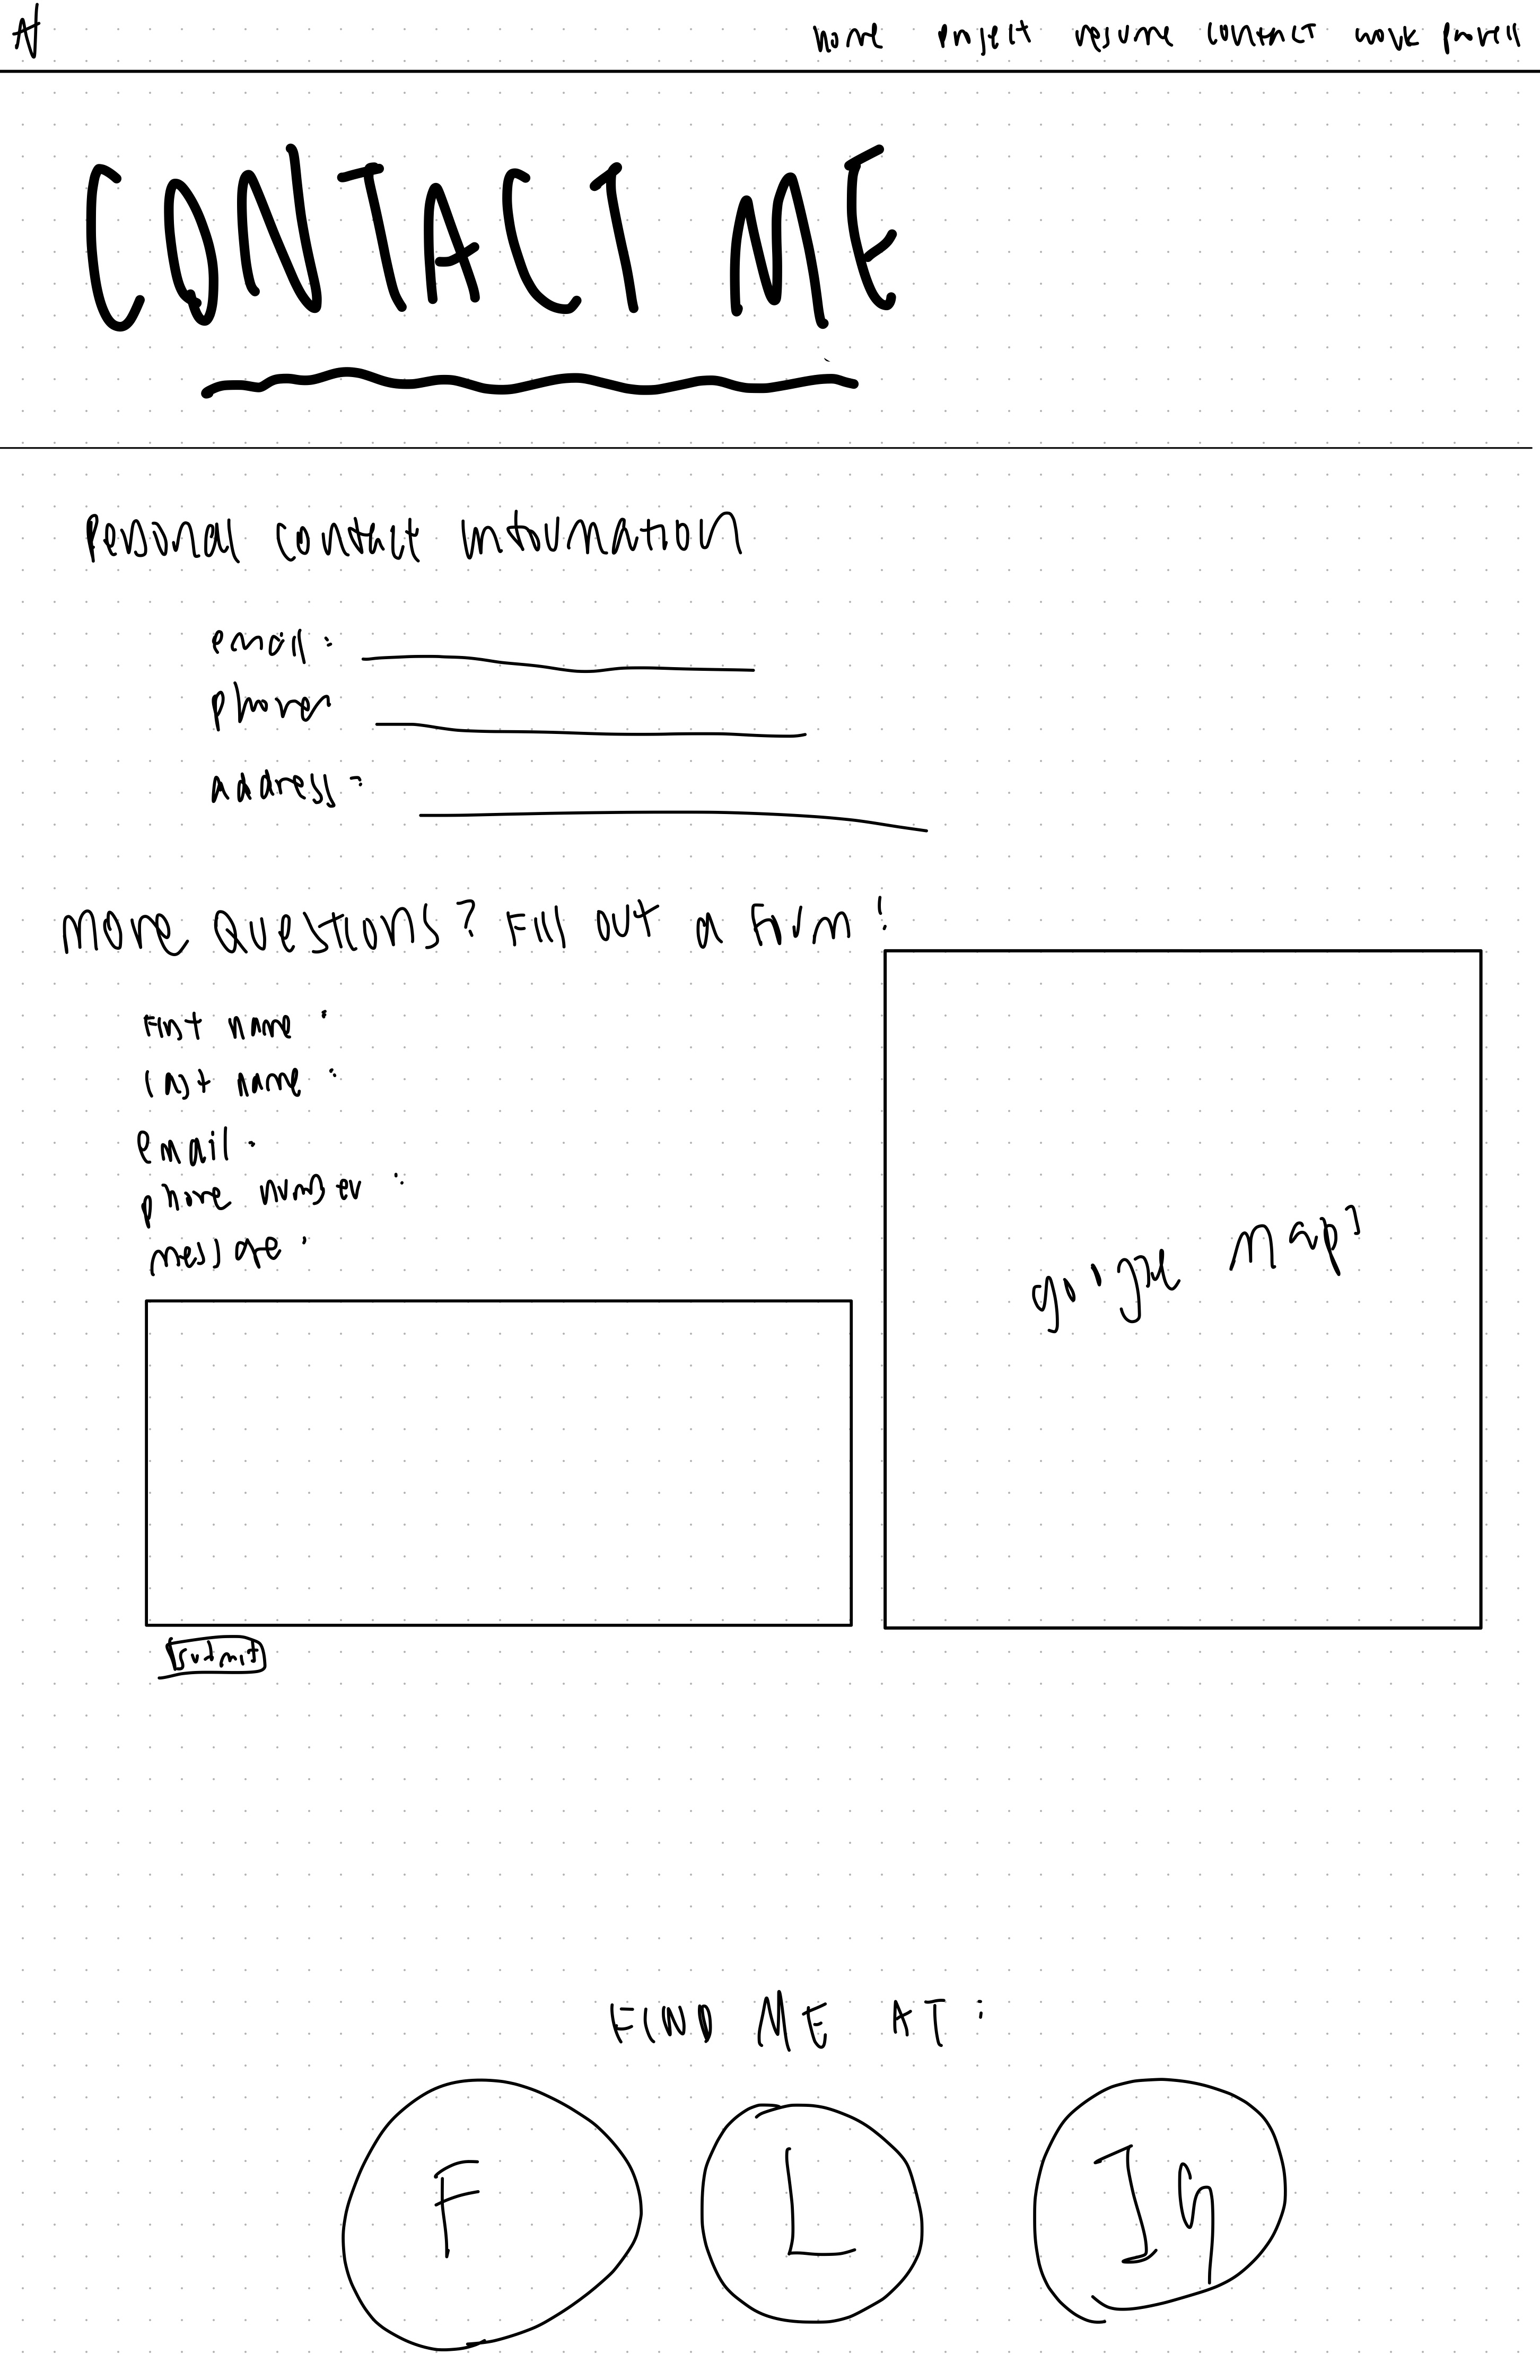 home project resume contact work
CONTACT ME
Personal contact information
email:
phone:
address:
MORE QUESTIONS? Fill OUT a Form!
First name:
last name:
email:
phone number:
message:
google maps
Submit
FIND ME AT:
F L Ig